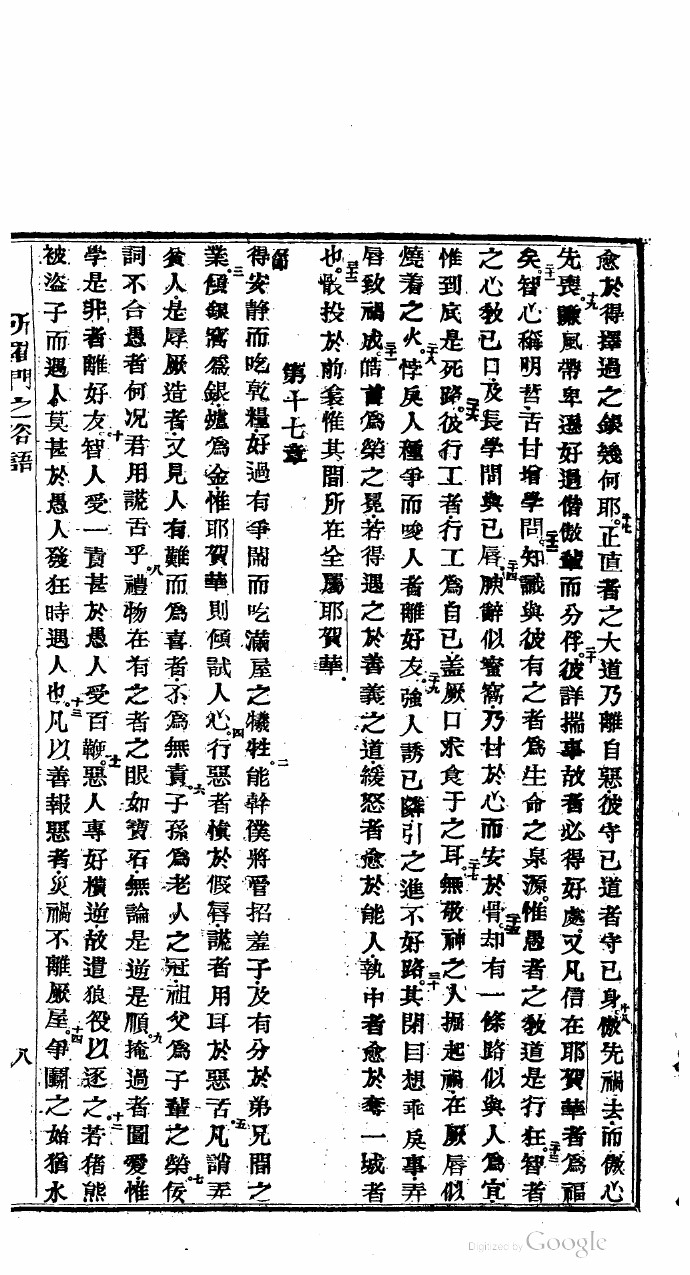 愈於得擇過之銀幾何耶。十七正直者之大道乃離自惡。彼守己道者守己身。十八傲先禍去。而傲心
先喪。十九謙風帶卑遜好過偕傲輩而分俘。二十彼詳揣事故者必得好處。又凡信在耶賀華者為福
矣。二一智心稱明哲。舌甘增學問。二十二知識與彼有之者為生命之泉源。惟愚者之教道是行狂。二十三智者
之心教己口。及長學問與己唇。二十四腴辭似蜜窩。乃甘於心而安於骨。二十五却有一條路似與人為宜。
惟到底是死路。二十六彼行工者。行工為自己。蓋厥口求食于之耳。二十七無敬神之人掘起禍。在厥唇似
燒着之火。二十八悖戾人種爭。而唆人者離好友。二十九強人誘己隣。引之進不好路。三十其閉目想乖戾事。弄
唇致禍成。三十一皓首為榮之冕。若得遇之於善義之道。緩怒者愈於能人。執中者愈於奪一城者
也。三十三骰投於前衾。惟其間所在全屬耶賀華。
第十七章
節
得安静而吃乾糧。好過有爭鬧而吃滿屋之犧牲。二能幹僕將管招羞子。及有分於弟兄間之
業。三傾銀窩為銀。爐為金。惟耶賀華則傾試人心。四行惡者槙於假唇。謊者用耳於惡舌。五凡誚弄
貧人。是辱厥造者。又見人有難而為喜者。不為無責。六子孫為老人之冠。祖父為子輩之榮。七佞
詞不合愚者。何况君用謊舌乎。八禮物在有之者之眼如寶石。無論是逆是順。九掩過者圖愛。惟
學是非者離好友。十智人受一責甚於愚人受百鞭。十一惡人專好橫逆。故遣狼役以逐之。十二若猪熊
被盜子而遇人。莫甚於愚人發狂時遇人也。十三凡以善報惡者。災禍不離厥屋。十四爭鬭之始猶水
所羅門之俗語
八
Digitized by Google